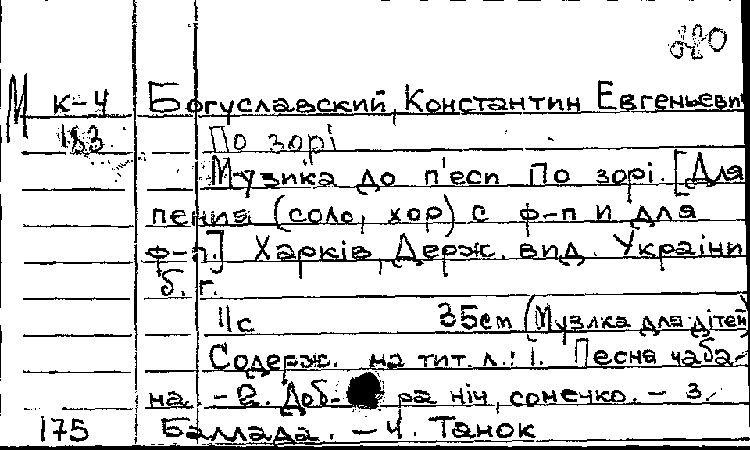 280
М к-4 Богуславский, Константин Евгеньеви
183 По зорі
Музика до п'еси По зорі. [Для
пения (соло, хор) с ф-п и для
ф-п.] Харків, Держ. вид. України
б. г.
11с 35см (Музика для дітей)
Содерж. на тит. л.: 1. Песня чаба-
на. - 2. Доб- ра ніч, сонечко. - 3.
175 Баллада. - 4. Танок